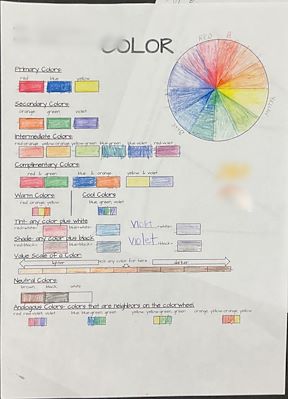 COLOR
Primary Colors:
red blue yellow
Secondary Colors:
orange green violet
Intermediate Colors:
red-orange yellow-orange yellow-green blue-green blue-violet red-violet
Complimentary Colors:
red & green blue & orange yellow & violet
Warm Colors Cool Colors
red, orange, yellow blue, green, violet
Tint- any color plus white
red+white= blue+white= Violet +white=
Shade- any color plus black
red+black= blue+black= violet +black=
Value Scale of a Color
lighter pick any color for here darker
Neutral Colors:
brown black white
Analogous Colors- colors that are neighbors on the colorwheel
red, red-violet, violet blue, blue-green, green yellow, yellow-green, green orange, yellow-orange, yellow
RED